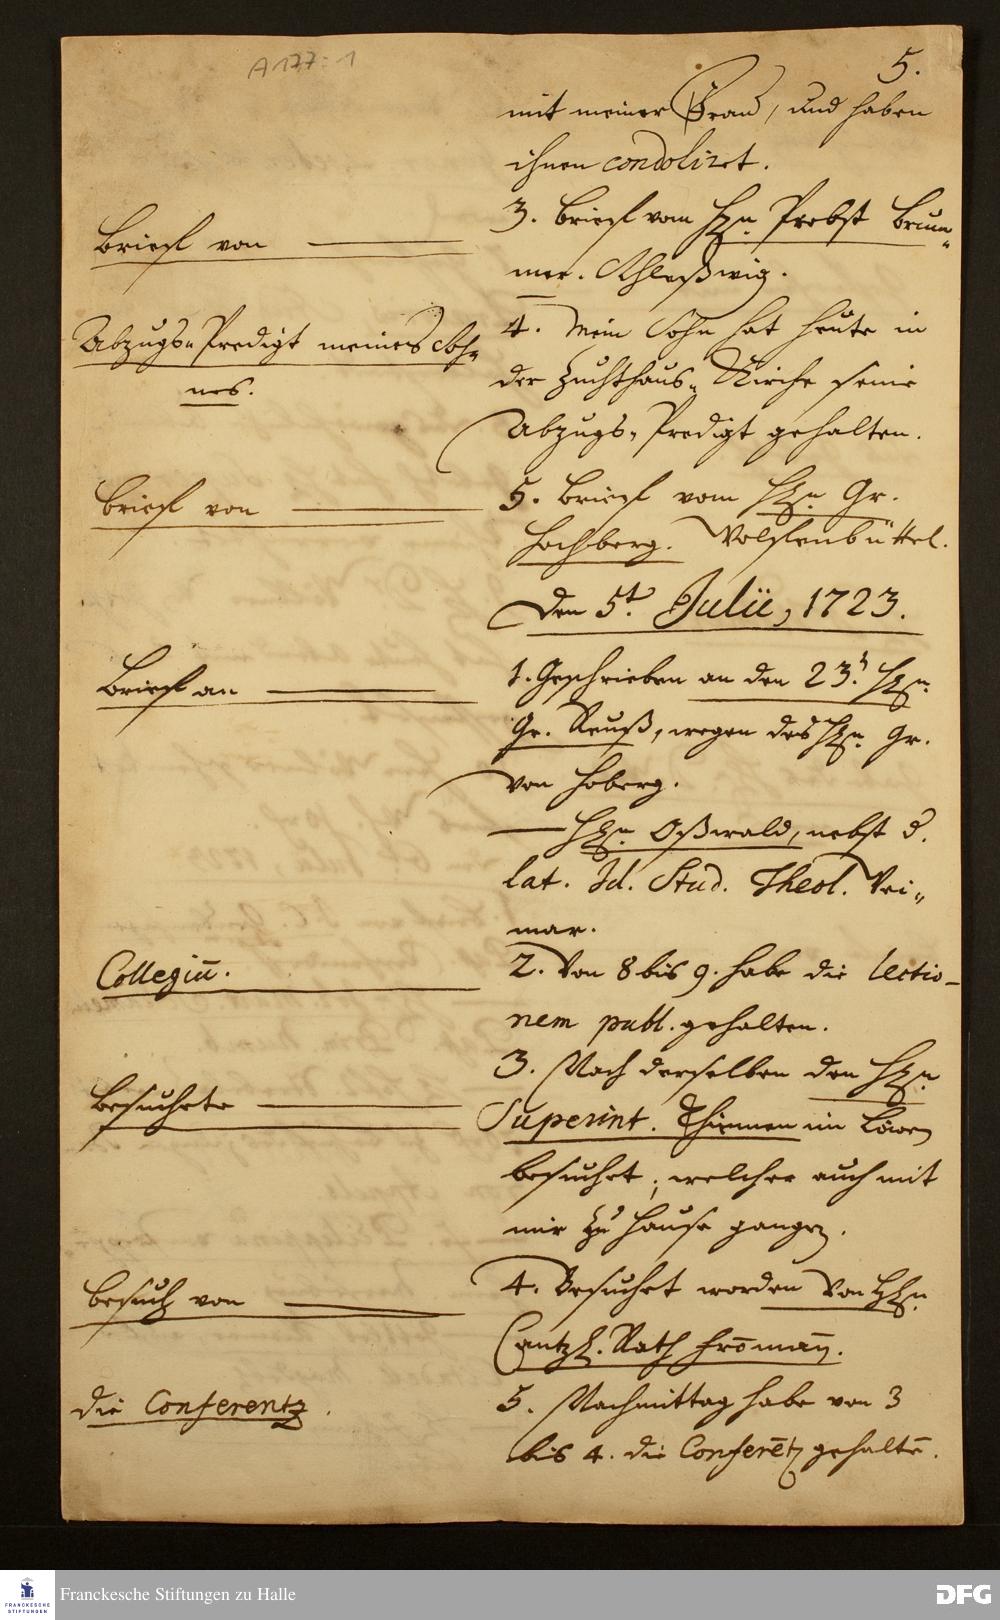 A 177:1
5.
mit meiner Frau, und haben
ihnen condoliret.
Brieff von
3. Brieff vom Hrn. Probst Brum„
mer. Schleßwig.
Abzugs„ Predigt meines Soh„
nes.
4. Mein Sohn hat heute in
der Zuchthaus„ Kirche seine
Abzugs„ Predigt gehalten.
Brieff von
5. Brieff vom Hrn. Gr.
Hochberg. Wolffenbüttel.
Den 5t. Julii, 1723.
Brieff an
1. Geschrieben an den 23. Hrn.
Gr. Reuß, wegen des Hrn. Gr.
von Hoberg.
Hrn. Oßwald, nebst d.
lat. Id. Stud. Theol. Wei„
mar.
Collegiu̅.
2. Von 8 bis 9. habe die lectio-
nem publ. gehalten.
Besuchete
3. Nach derselben den Hrn.
Superint. Thiemen im Löwen
besuchet, welcher auch mit
mir zu Hause gangen.
Besuch von
4. Besuchet worden von Hrn.
Cantzl. Rath Fro̅man̅.
die Conferentz.
5. Nachmittag habe von 3
bis 4. die Confere̅tz gehalte̅.
Franckesche Stiftungen zu Halle
FRANCKESCHE
STIFTUNGEN
DFG